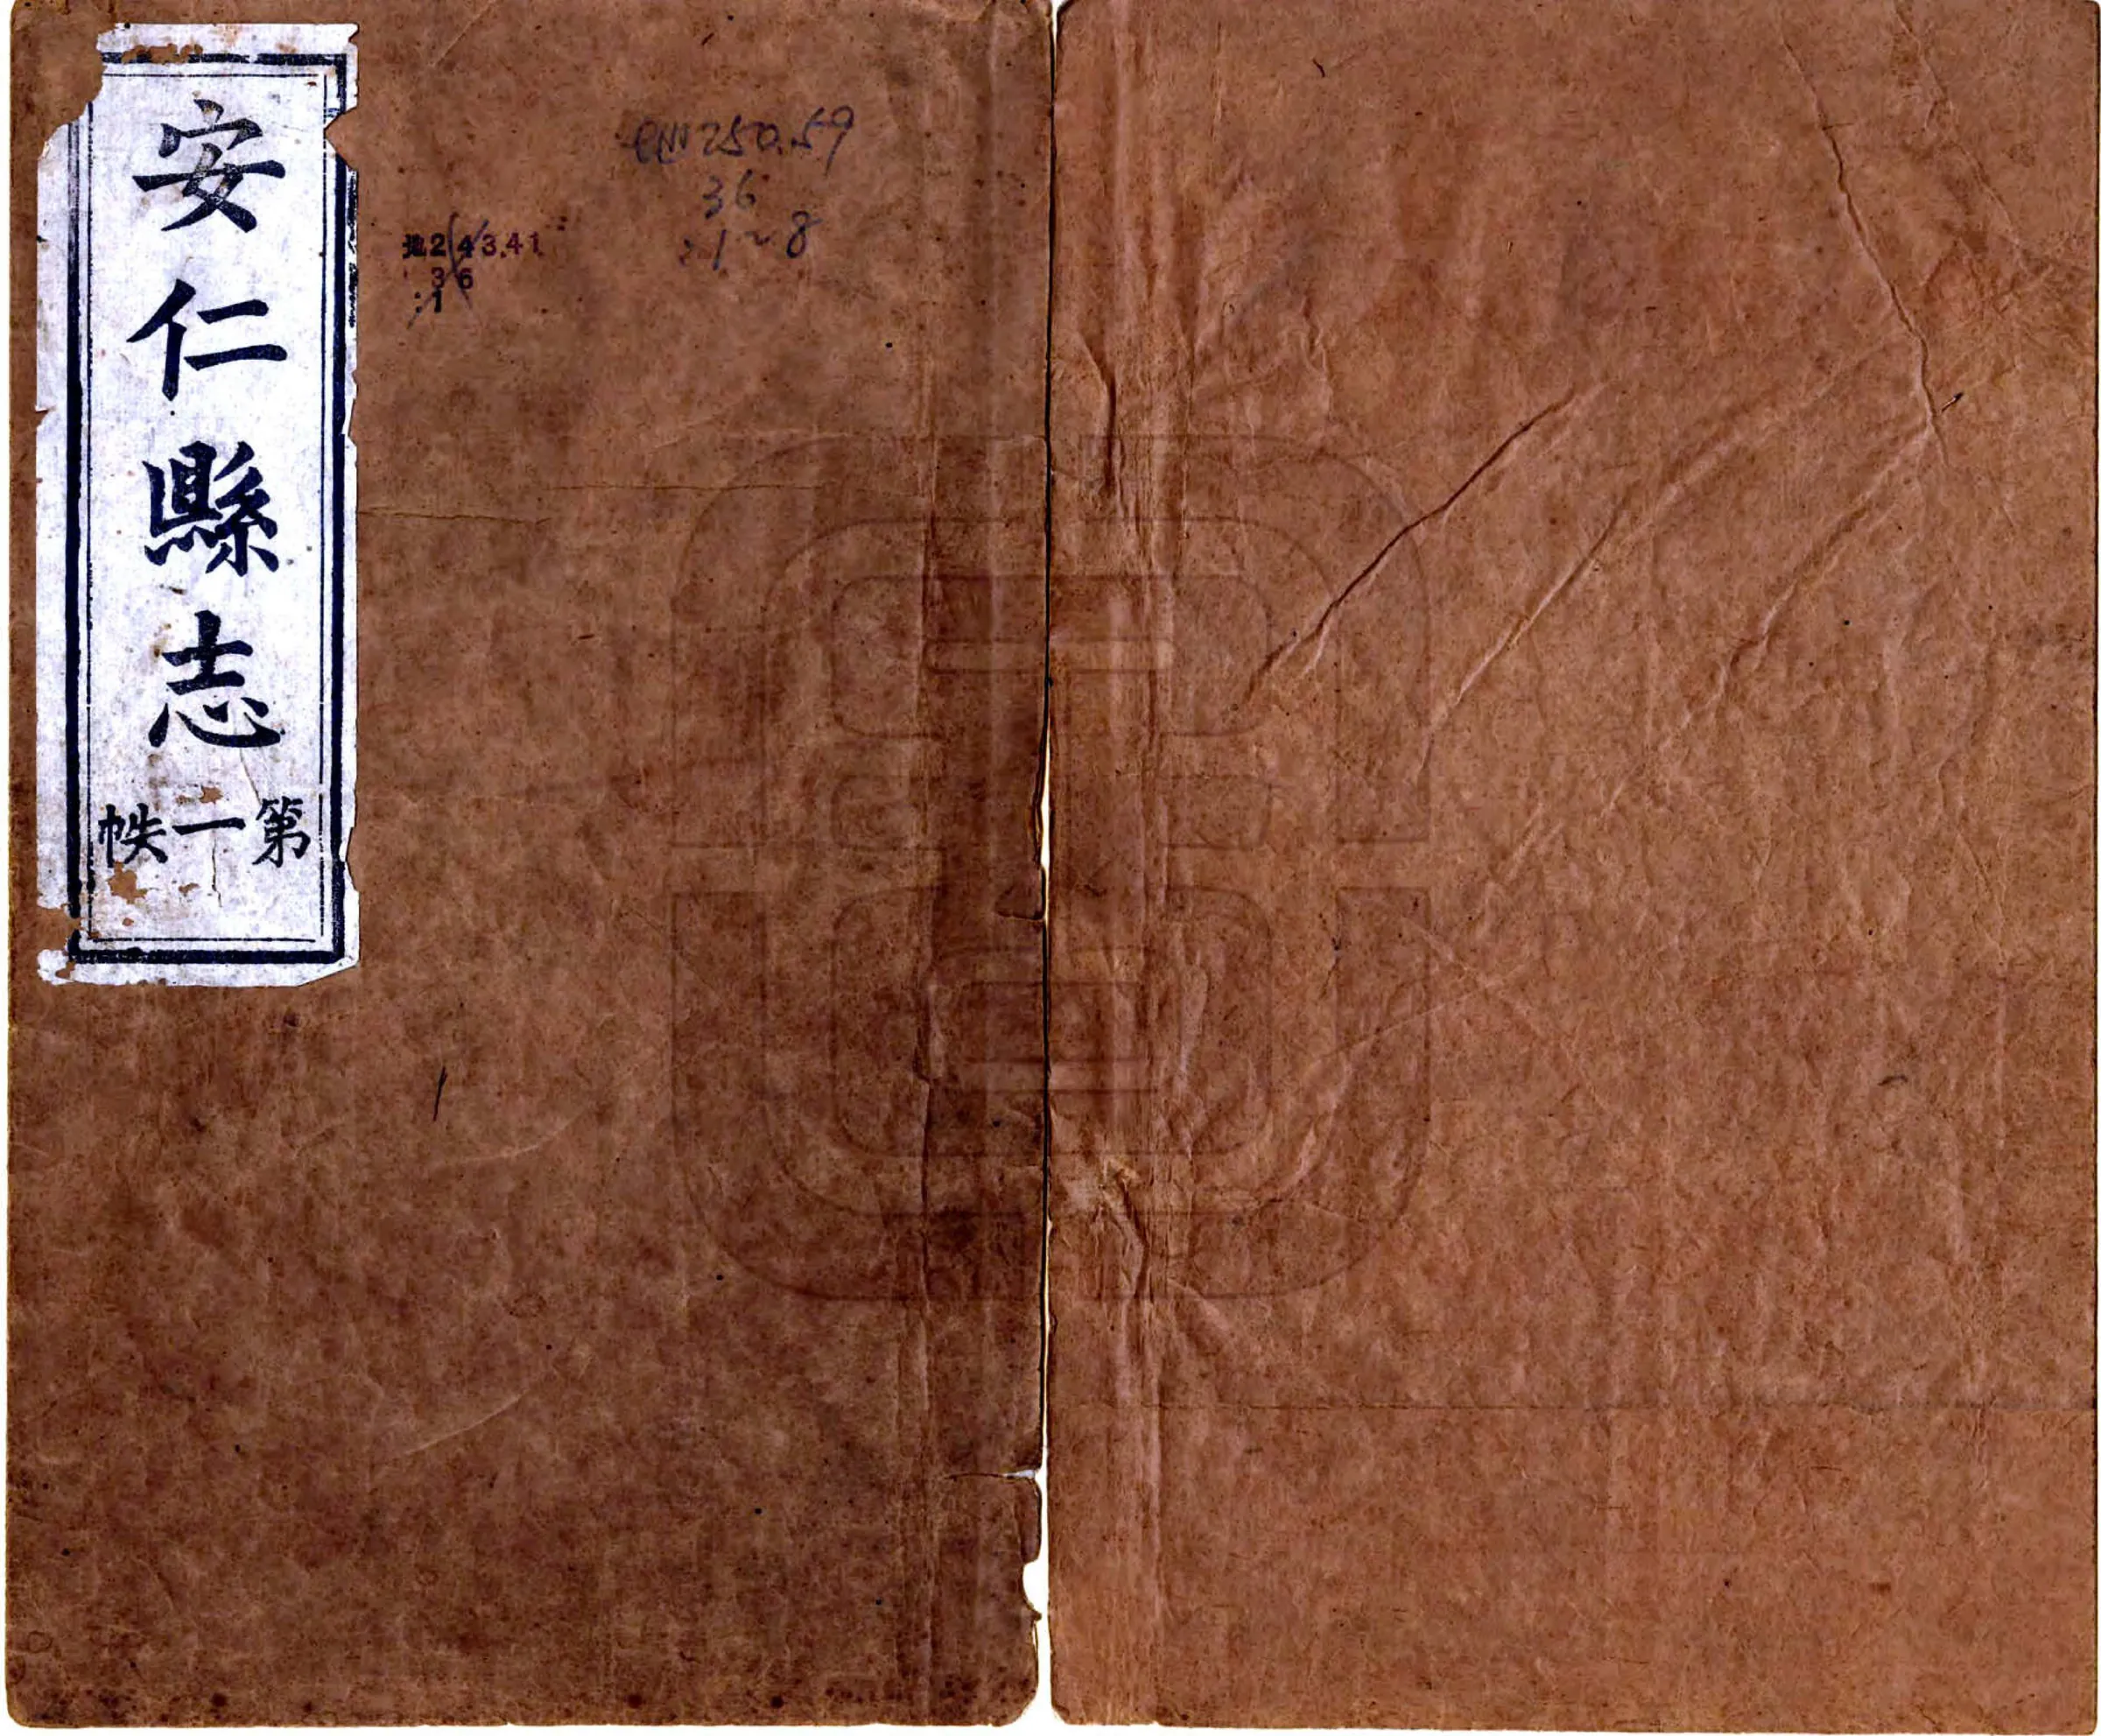 安仁縣志
第一帙
地243.41
36
:1
250.59
36
:1~8